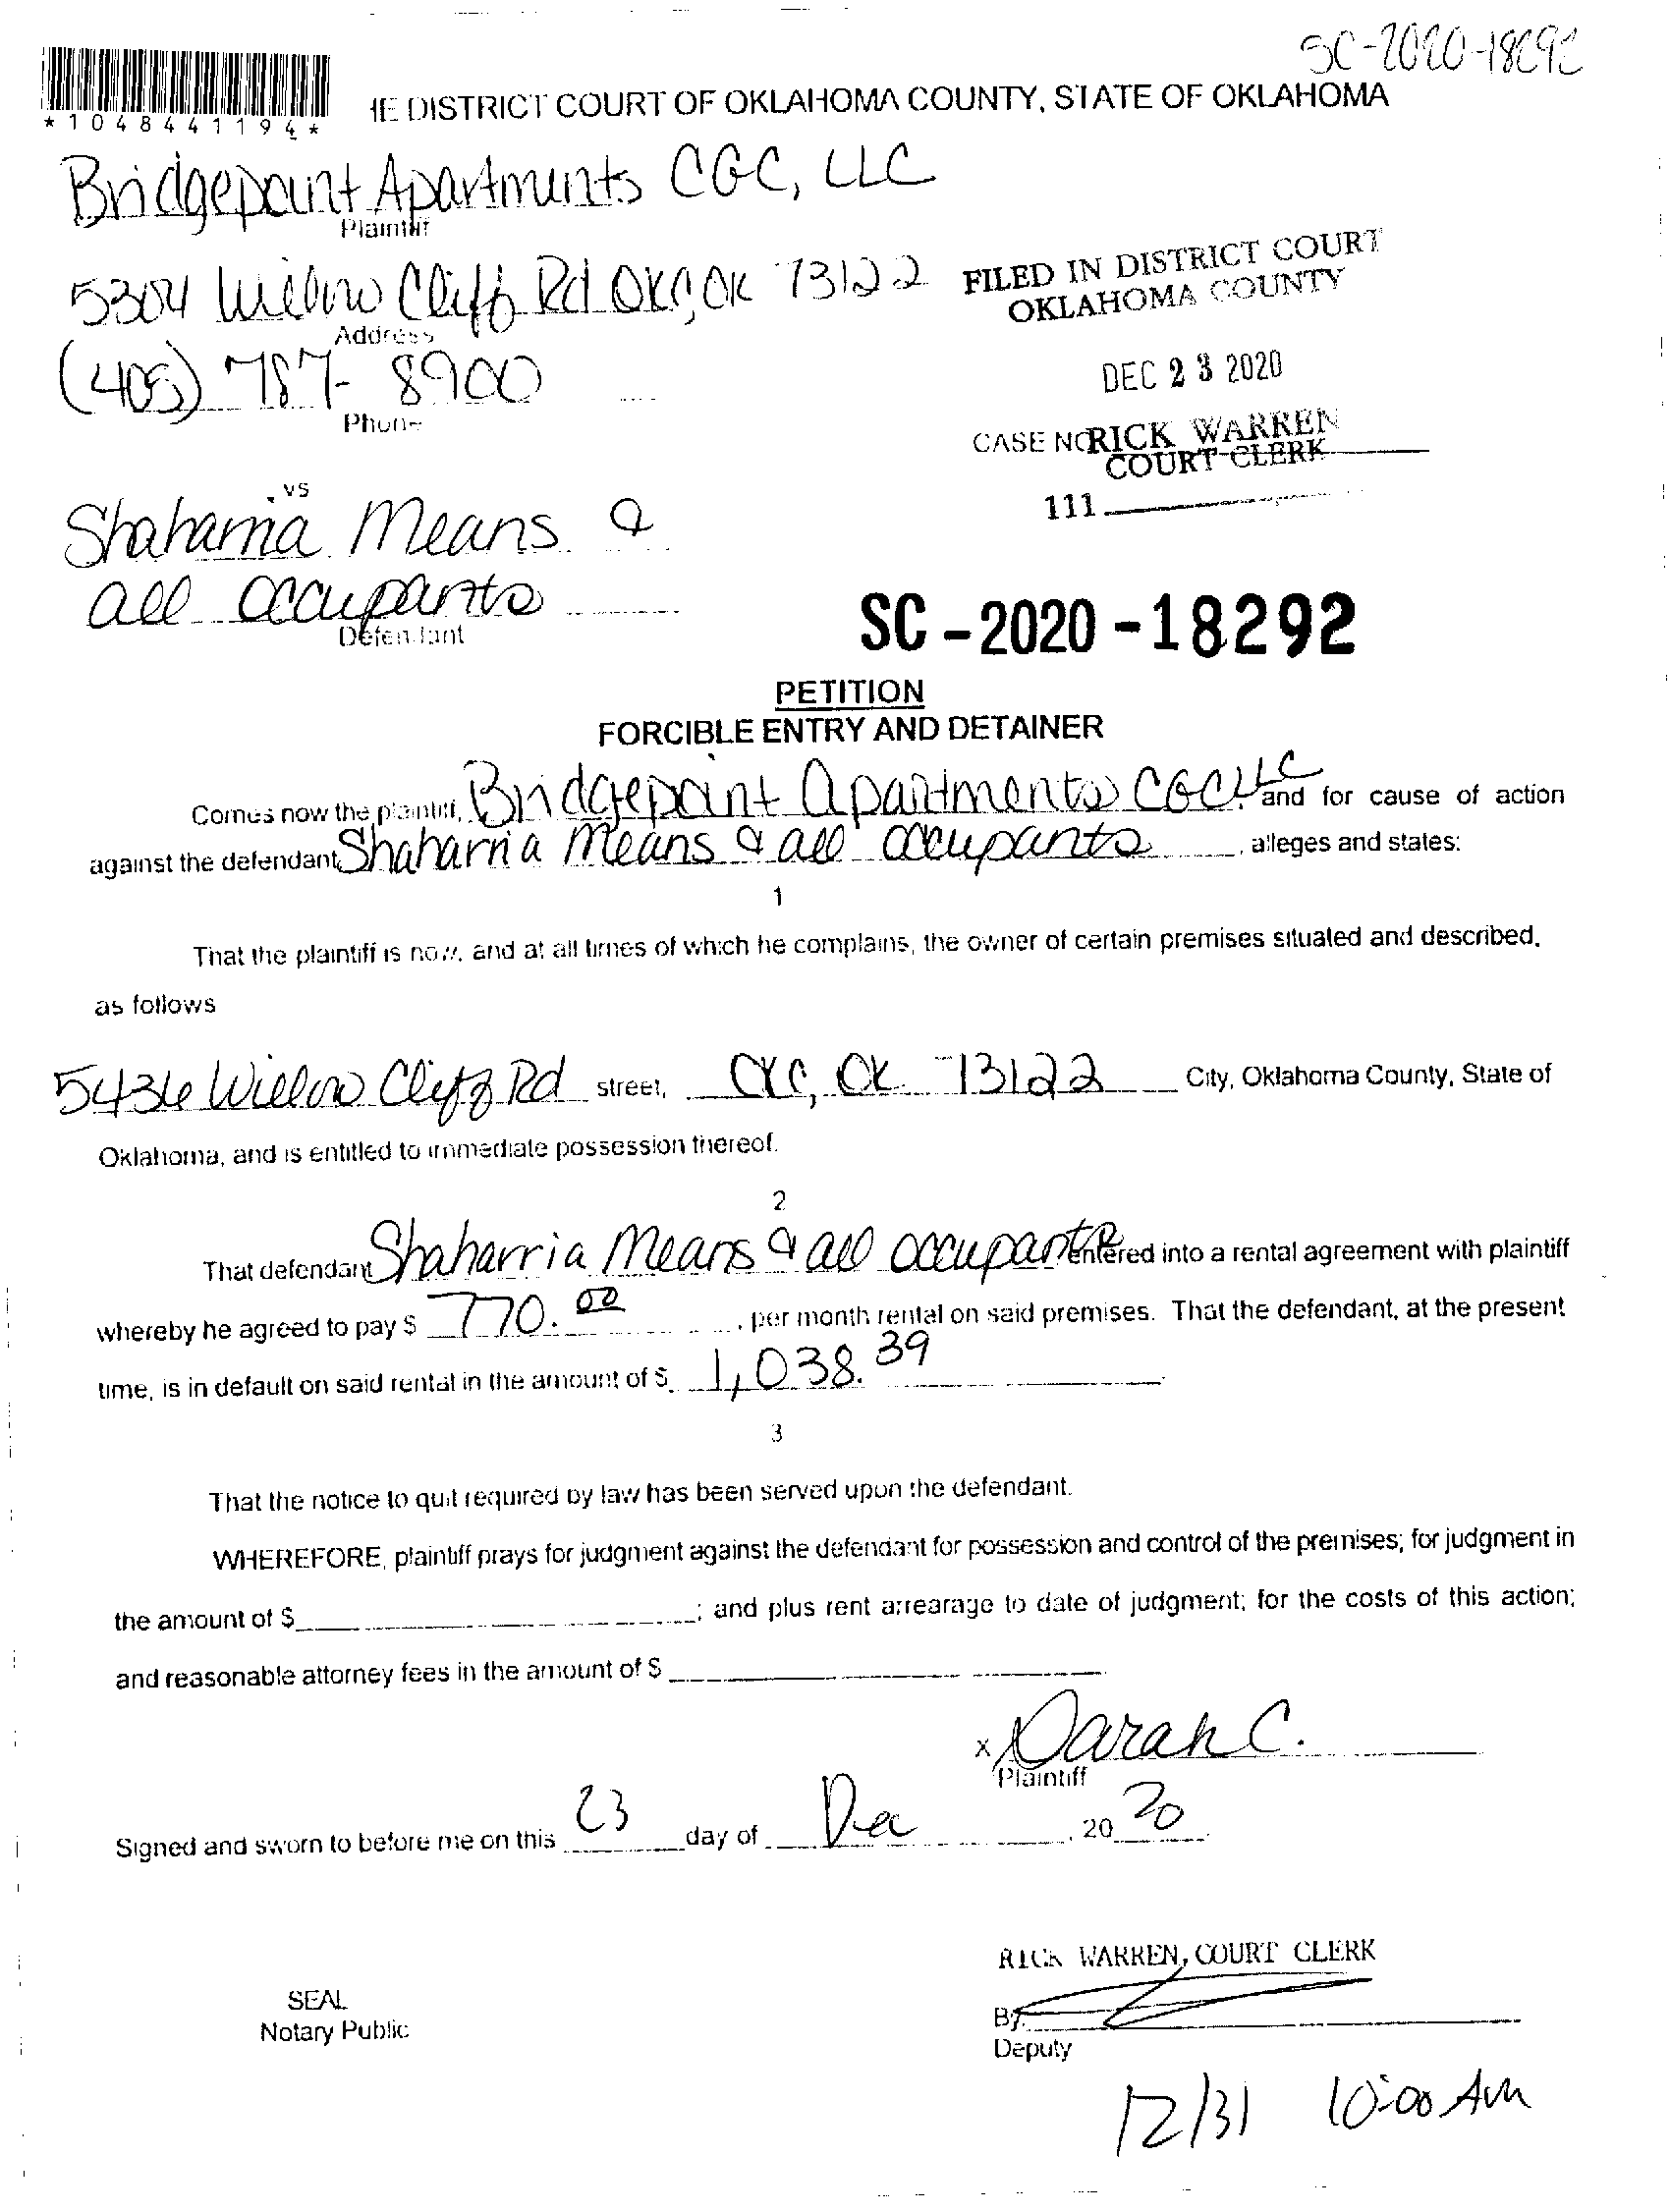 SC-2020-18292
*1048441194*
HE DISTRICT COURT OF OKLAHOMA COUNTY, STATE OF OKLAHOMA
Bridgepoint Apartments CGC, LLC
Plaintiff
5304 Willow Cliff Rd OKC, OK 73122
Address
FILED IN DISTRICT COURT
OKLAHOMA COUNTY
(405) 787-8900
Phone
DEC 23 2020
CASE NO
RICK WARREN
COURT CLERK
111
vs
Shaharria Means &
all occupants
Defendant
SC-2020-18292
PETITION
FORCIBLE ENTRY AND DETAINER
Comes now the plaintiff, Bridgepoint Apartments CGC, LLC and for cause of action
against the defendant Shaharria Means & all occupants, alleges and states:
1
That the plaintiff is now, and at all times of which he complains, the owner of certain premises situated and described,
as follows
5436 Willow Cliff Rd street, OKC, OK 73122 City, Oklahoma County, State of
Oklahoma, and is entitled to immediate possession thereof.
2
That defendant Shaharria Means & all occupants entered into a rental agreement with plaintiff
whereby he agreed to pay $ 770.00, per month rental on said premises. That the defendant, at the present
time, is in default on said rental in the amount of $ 1,038.39
3
That the notice to quit required by law has been served upon the defendant.
WHEREFORE, plaintiff prays for judgment against the defendant for possession and control of the premises; for judgment in
the amount of $ ; and plus rent arrearage to date of judgment; for the costs of this action;
and reasonable attorney fees in the amount of $
x Darah C.
Plaintiff
Signed and sworn to before me on this 23 day of Dec, 20 20
RICK WARREN, COURT CLERK
SEAL
Notary Public
By
Deputy
12/31 10:00 AM